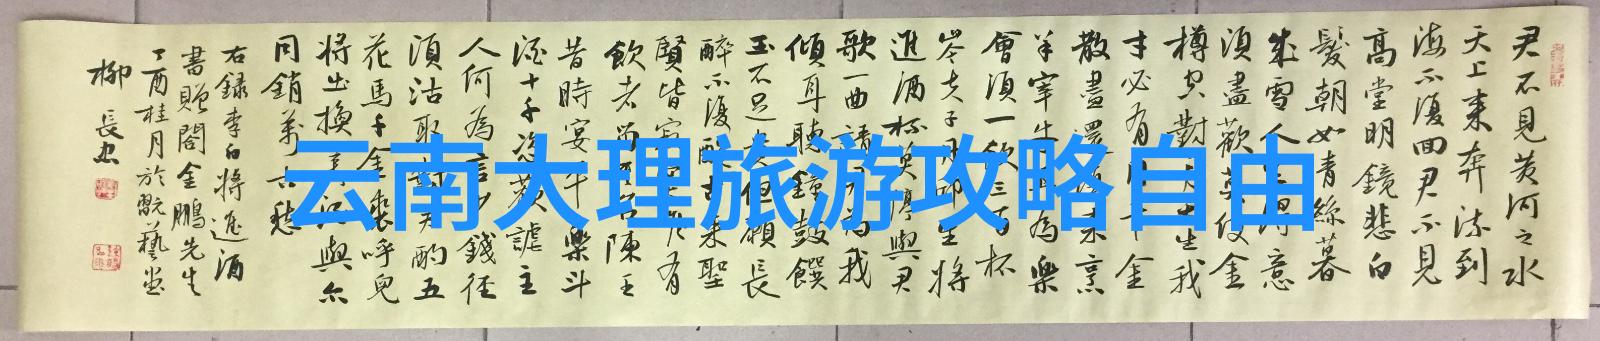 君不見黃河之水
天上來奔流到
海不復回君不見
高堂明鏡悲白
髮朝如青絲暮
成雪人生得意
須盡歡莫使金
樽空對月天生我
才必有用千金
散盡還復來烹
羊宰牛且為樂
會須一飲三百杯
岑夫子丹邱生將
進酒杯莫停與君
歌一曲請君為我
傾耳聽鐘鼓饌
玉不足貴但願長
醉不復醒古來聖
賢皆寂寞惟有
飲者留其名陳王
昔時宴平樂斗
酒十千恣歡謔主
人何為言少錢徑
須沽取對君酌五
花馬千金裘呼兒
將出換美酒與尔
同銷萬古愁
右録李白將進酒
書贈閻金鵬先生
丁酉桂月於翫藝堂
柳長忠
云南大理旅游攻略自由